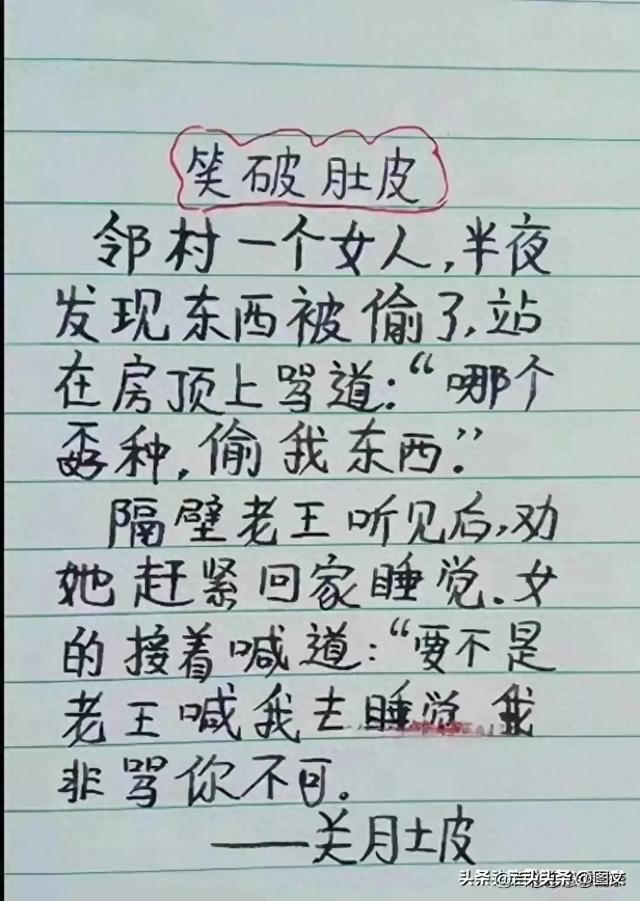 笑破肚皮
邻村一个女人,半夜
发现东西被偷了,站
在房顶上骂道:“哪个
孬种,偷我东西.”
隔壁老王听见后,劝
她赶紧回家睡觉.女
的接着喊道:“要不是
老王喊我去睡觉 我
非骂你不可。
——美月土皮
头条 @图文